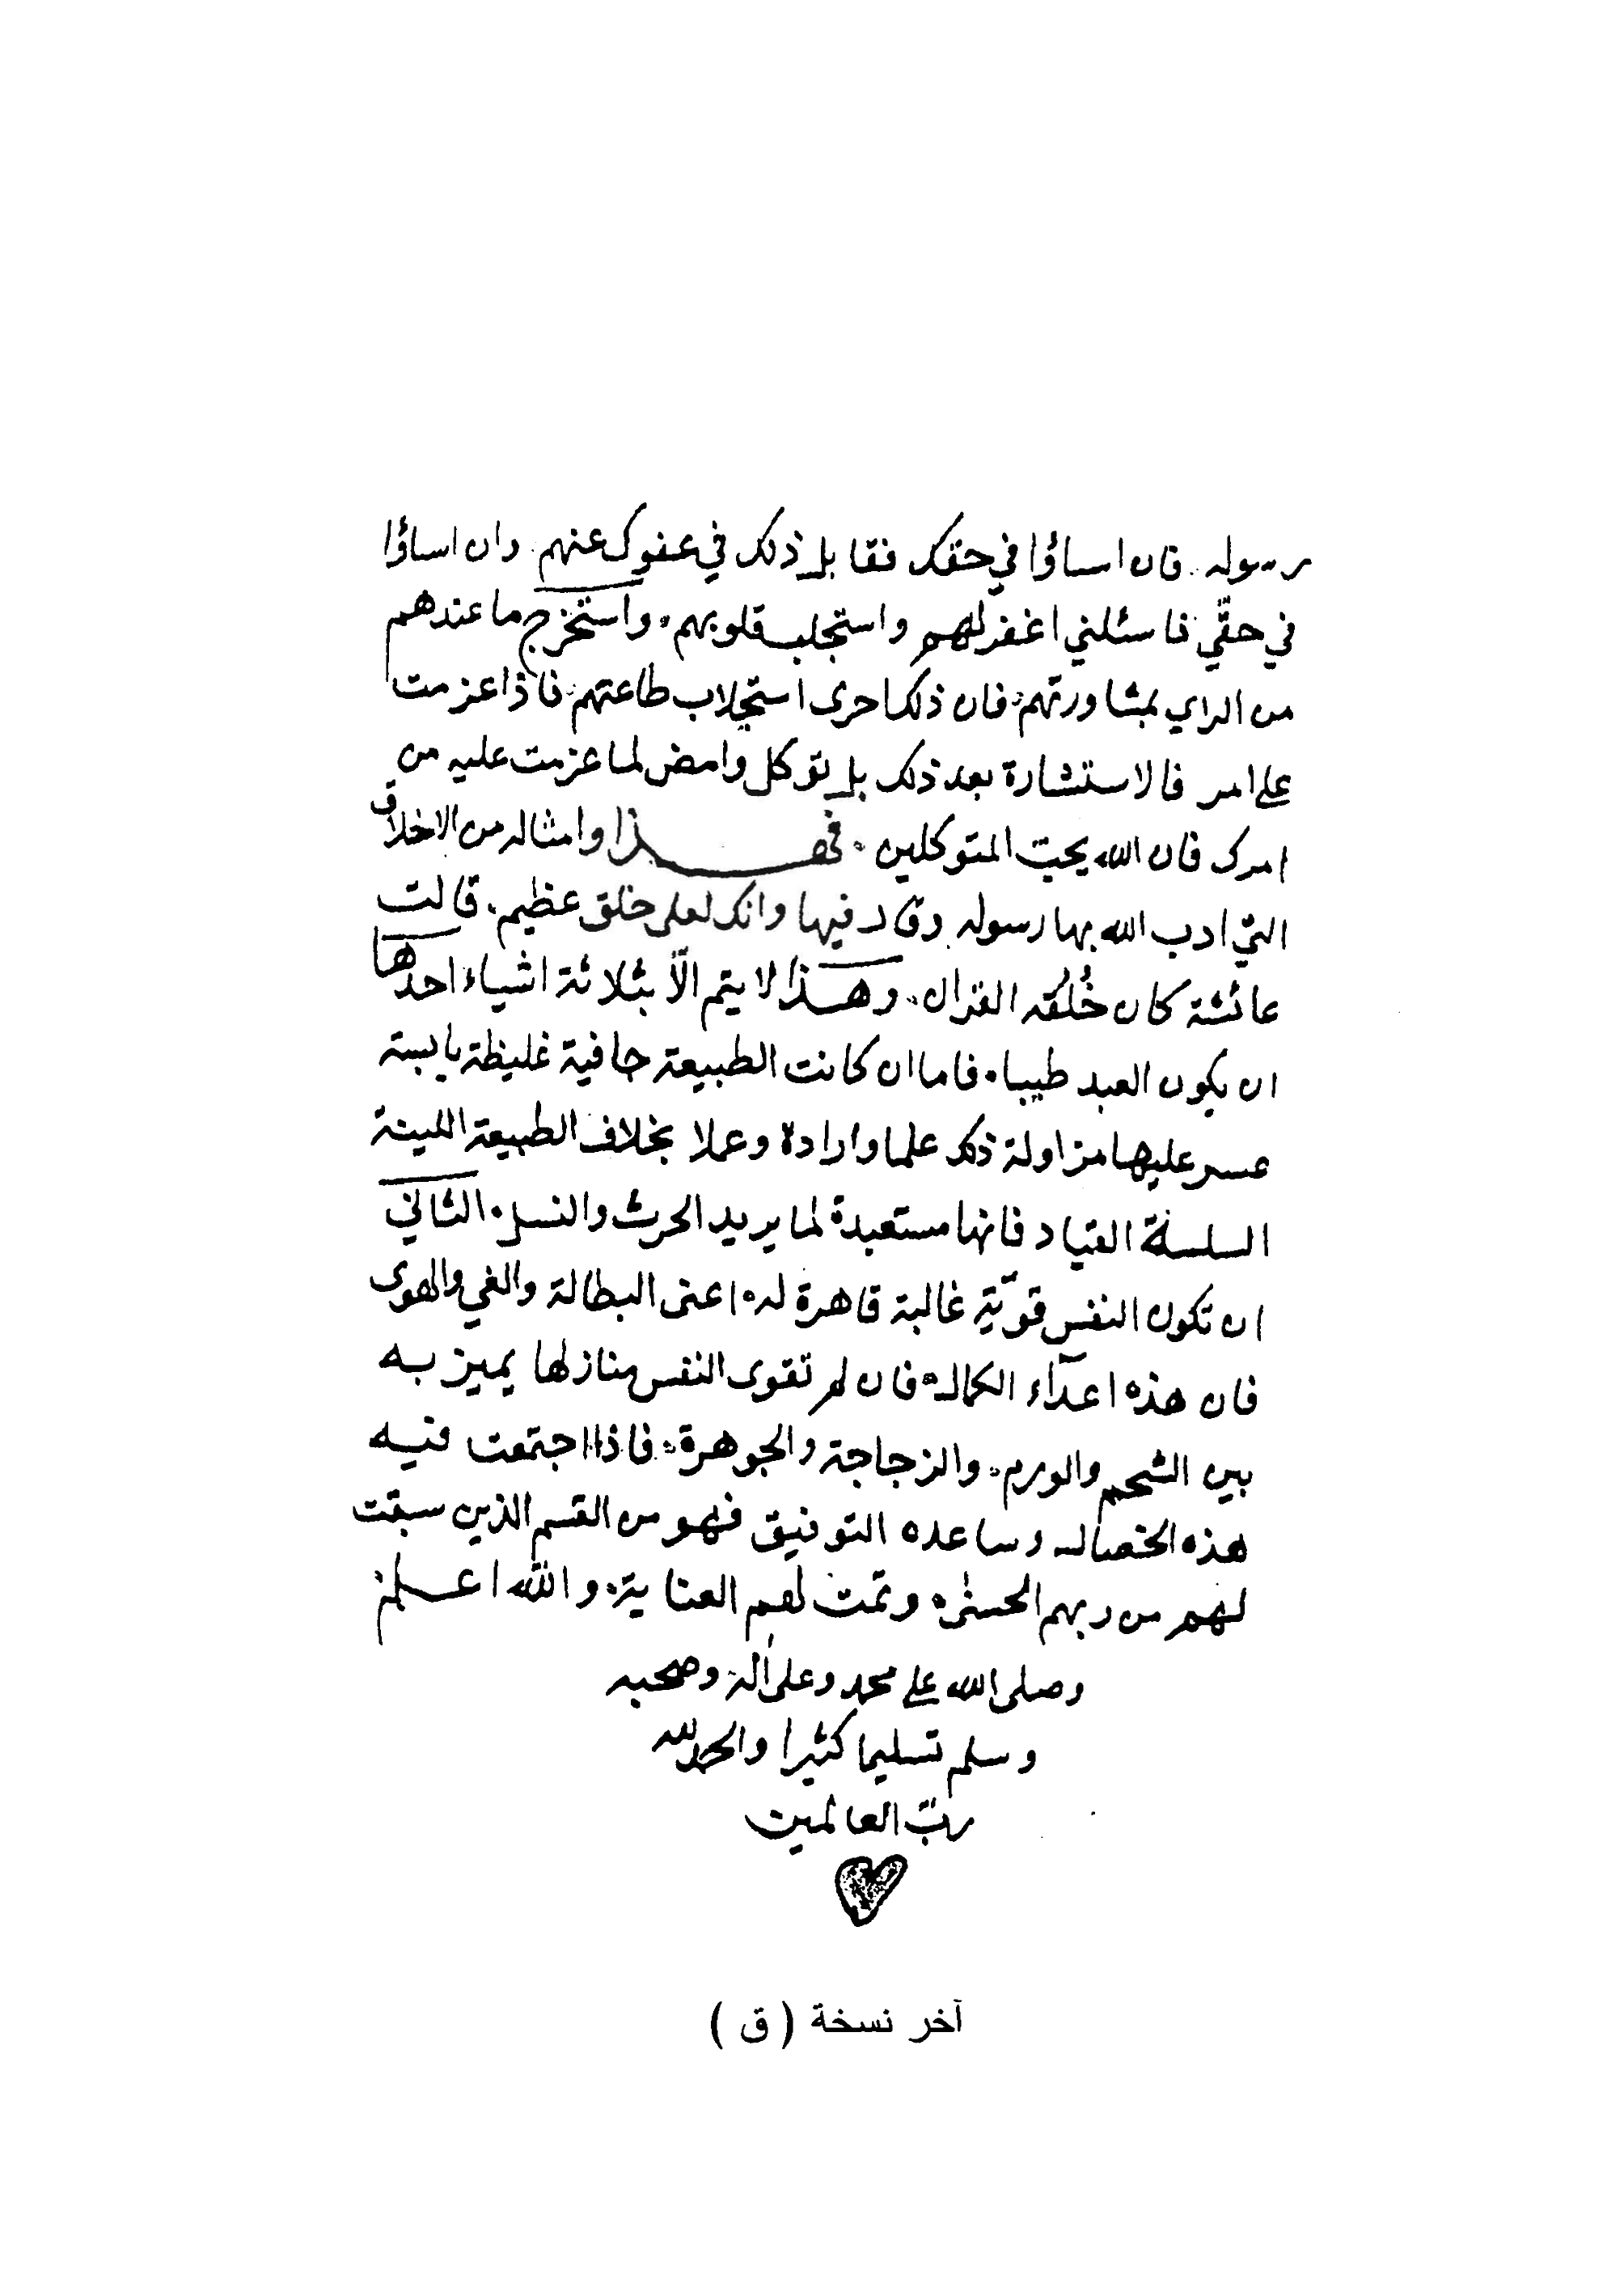 رسوله. فان اساؤا في حقك فقابل ذلك في عفوك عنهم. وان اساؤا
في حقّي فاسئلني اغفر لهم واستجلب قلوبهم. واستخرج ما عندهم
من الراي بمشاورتهم. فان ذلك احرى استجلاب طاعتهم. فاذا عزمت
على امر فالاستشارة بعد ذلك بل توكل وامض لما عزمت عليه من
امرك فان الله يحب المتوكلين. فهذا وامثاله من الاخلاق
التي ادب الله بها رسوله وقال فيها وانك لعلى خلق عظيم. قالت
عائشة كان خُلُقه القران. وهذا لا يتم الّا بثلاثة اشياء احدها
ان يكون العبد طيبا. فاما ان كانت الطبيعة جافية غليظة يابسة
عسر عليها مزاولة ذلك علما وارادة وعملا بخلاف الطبيعة اللينة
السلسة القياد فانها مستعبدة لما يريد الحرث والنسل. الثاني
ان تكون النفس قويّة غالبة قاهرة له. اعنى البطالة والغي والهوى
فان هذه اعدآء الكمال. فان لم تقوى النفس منازلها يميز به
بين الشحم والورم. والزجاجة والجوهرة. فاذا اجتمعت فيه
هذه الخصال وساعده التوفيق فهو من القسم الذين سبقت
لهم من ربهم الحسنى. وتمت لهم العناية. والله اعلم
وصلى الله على محمد وعلى اله وصحبه
وسلم تسليما كثيرا والحمد لله
ربّ العالمين
آخر نسخة ( ق )